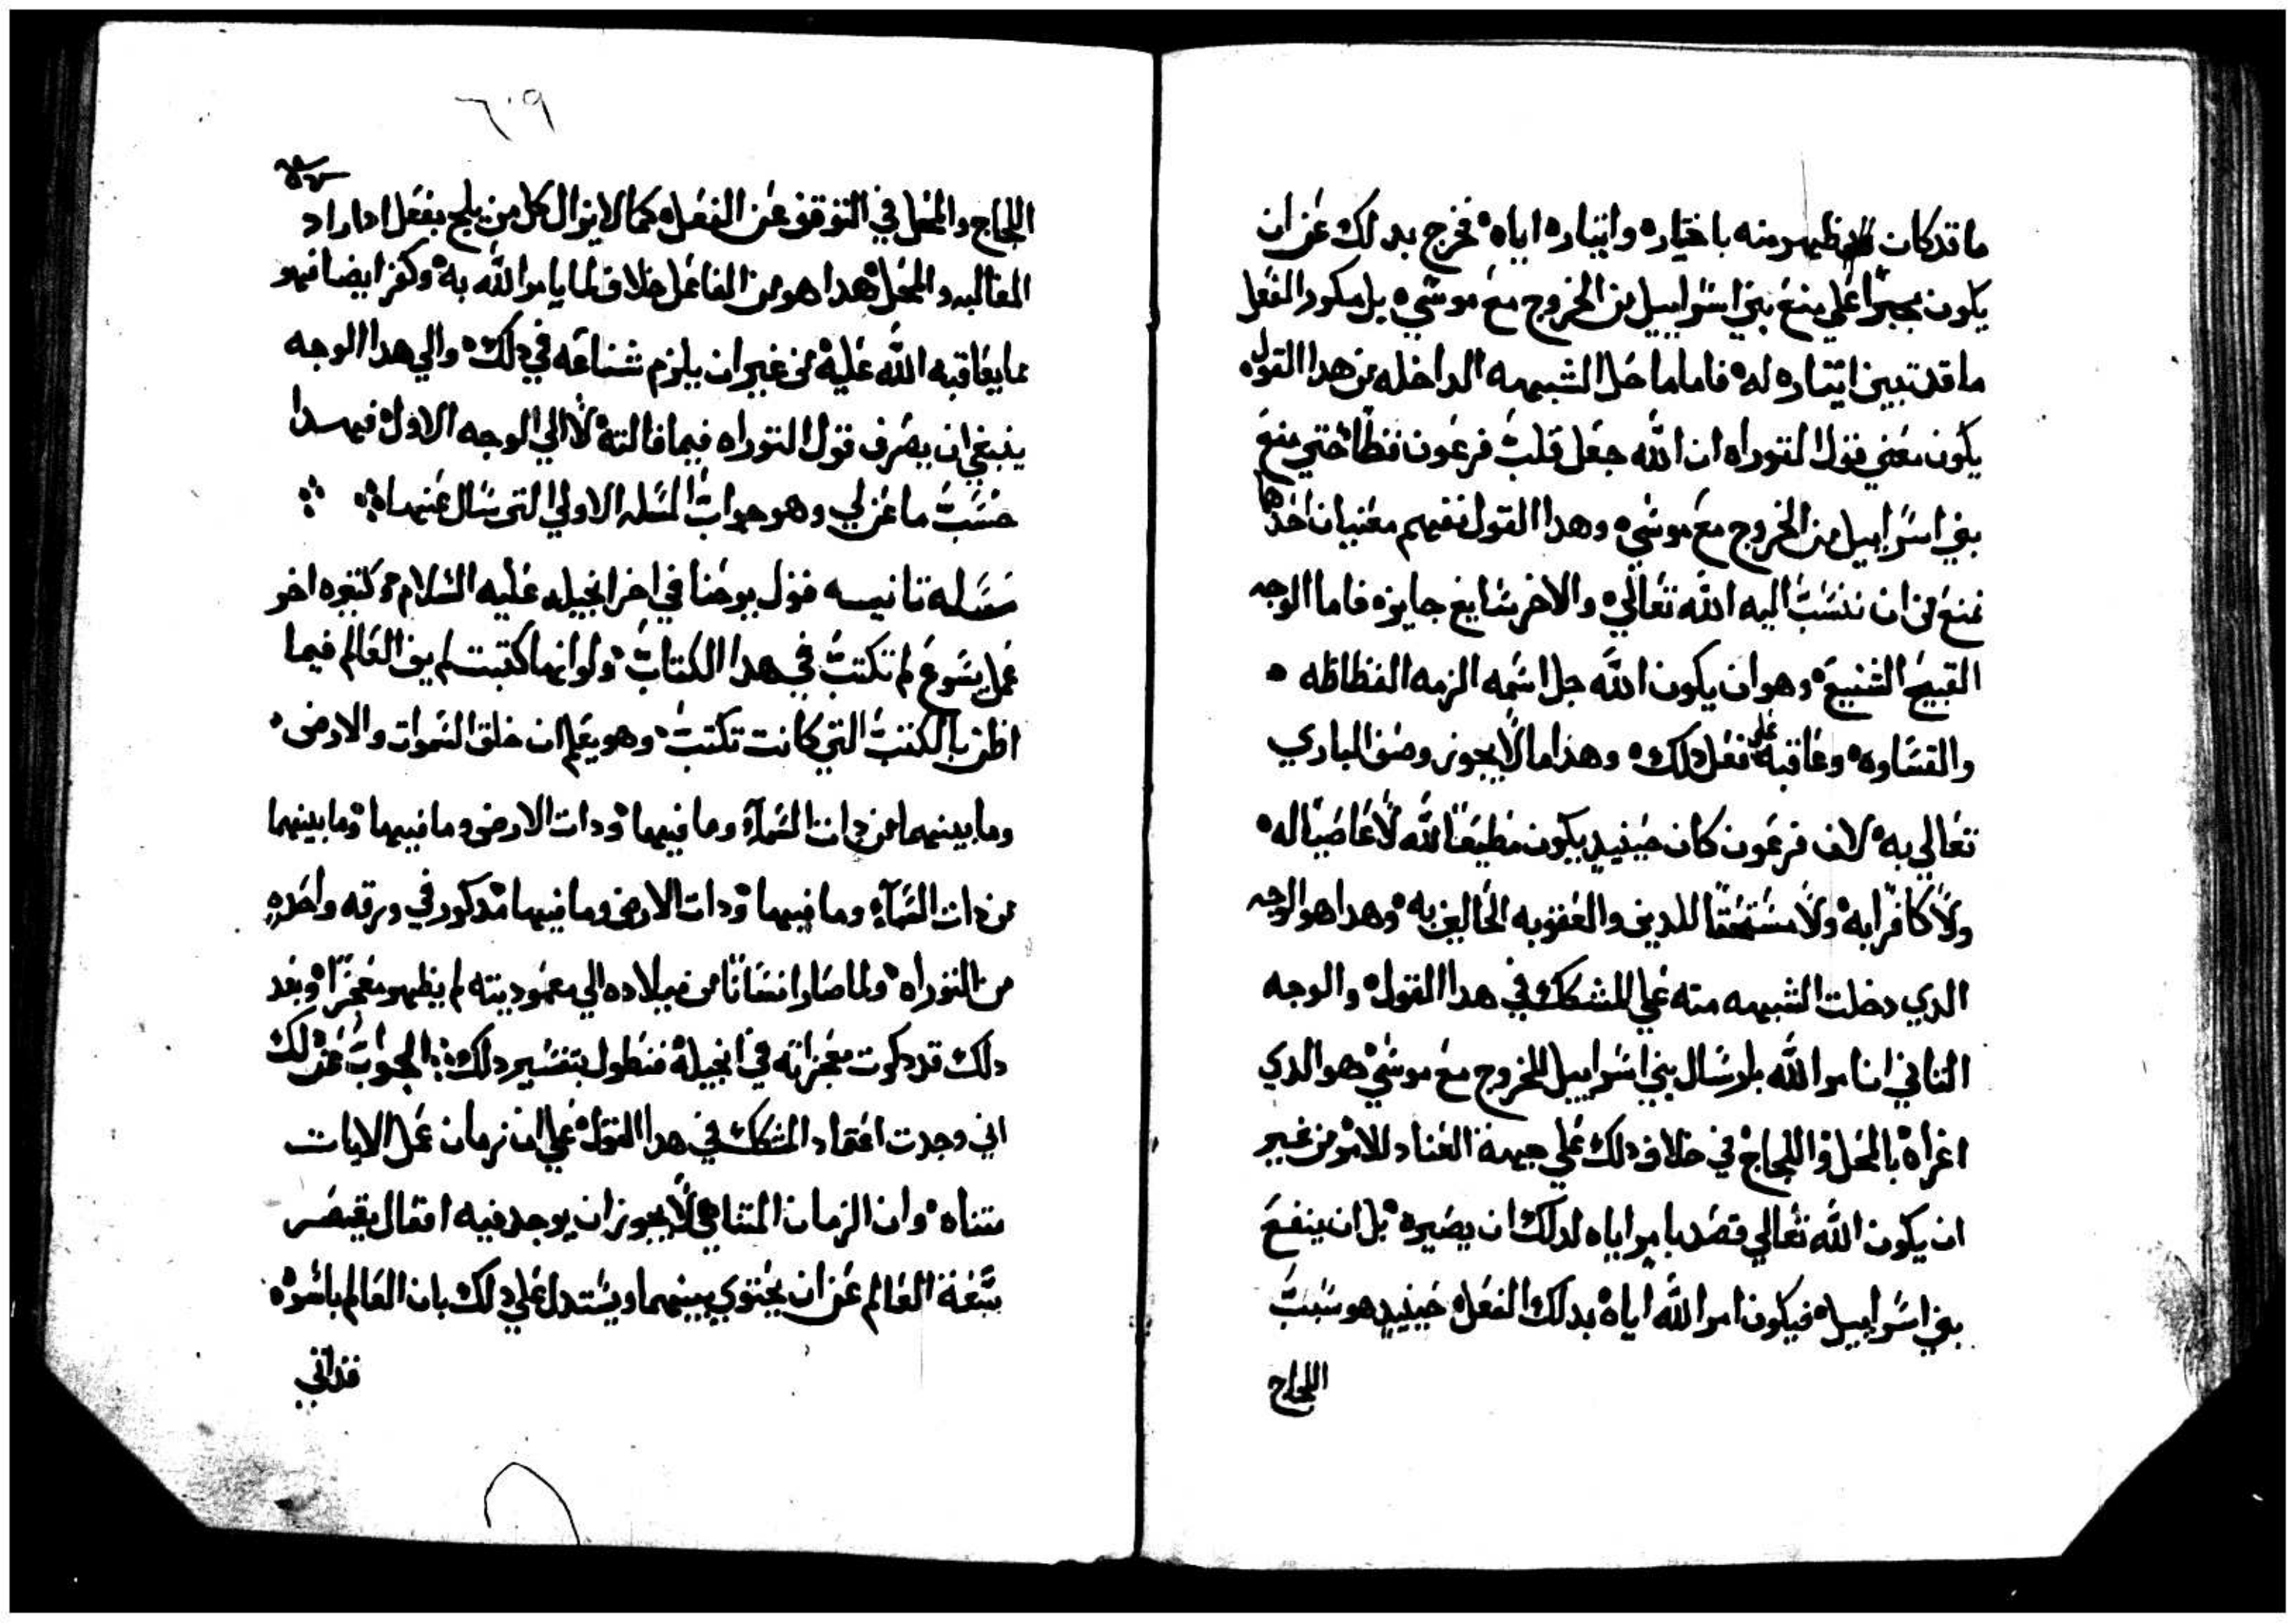 ما قد كان يظهر منه باختياره وايثاره اياه فخرج بدلك عن ان
يكون مجبراً على منع بني اسراييل من الخروج مع موسي بل مكور الفعل
ما قد تبين ايثاره له فاما ما حل الشبهه الداخله من هدا القول
يكون معني قول التوراه ان الله جعل قلب فرعون فظاً حتي منع
بني اسراييل من الخروج مع موسي وهدا القول تفهم معنيان احدها
نمنع من ان ننسب اليه الله تعالي والاخر شايع جايز فاما الوجه
القبيح الشنيع وهو ان يكون الله جل اسمه الزمه الفظاظه
والقساوه وعاقبه على فعل دلك وهذا ما لا يجوز وصف الباري
تعالي به لان فرعون كان حينيد يكون مطيعاً لله لا عاصياً له
ولا كافراً به ولا مستحقاً للدين والعقوبه الحاليين به وهدا هو الوجه
الدي دخلت الشبهه منه على المشكك في هدا القول والوجه
التاني ان امر الله بارسال بني اسراييل للخروج مع موسي هو الدي
اغراه بالمحل واللجاج في خلاف دلك علي جهة العناد للامر من غير
ان يكون الله تعالي قصد بامره اياه لدلك ان يضيره بل ان ينفع
بني اسراييل فيكون امر الله اياه بدلك الفعل حينيد هو سبب
اللجاج
٦٠٩
اللجاج والمحل في التوقف عن الفعل كما لا يزال كل من يلج يفعل ادا اراد
المغالبه والمحل هدا هو من الفاعل خلاف لما يامر الله به وكفر ايضا فهو
مما يعاقبه الله عليه من غير ان يلزم شناعه في دلك والي هدا الوجه
ينبغي ان يصرف قول التوراه فيما قالته لا الي الوجه الاول فهدا
حسب ما عن لي وهو جواب المسله الاولي التي سال عنها
مسله تانيه قول يوحنا في اخر انجيله عليه السلام وكتيره اخر
عمل يسوع لم تكتب في هدا الكتاب ولو انها كتبت لم يف العالم فيما
اظن بالكتب التي كانت تكتب وهو يعلم ان خلق السموات والارض
وما بينهما من دات السمآء وما فيها ودات الارض وما فيها وما بينهما
من دات السمآء وما فيها ودات الارض وما فيها مدكور في ورقه واحده
من التوراه ولما صار انساناً من ميلاده الي معموديته لم يظهر معجزاً وبعد
دلك قد دكرت معجزاته في انجيله فنطول بتفسير دلك الجواب عن دلك
اني وجدت اعتماد المشكك في هدا القول علي ان زمان عمل الايات
متناه وان الزمان المتناهي لا يجوز ان يوجد فيه افعال يقصر
سعة العالم عن ان يحتوي بينهما ويستدل علي دلك بان العالم باسره